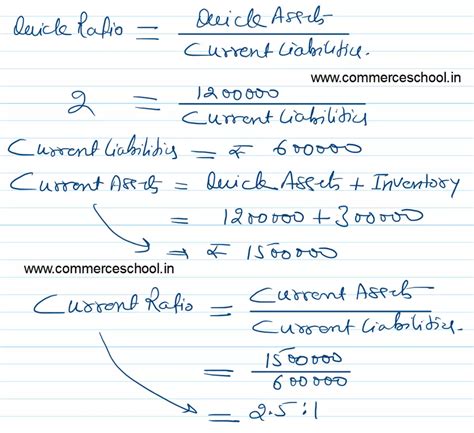 Quick Ratio = Quick Assets / Current Liabilities.
www.commerceschool.in
2 = 1200000 / Current Liabilities
Current Liabilities = ₹ 600000
Current Assets = Quick Assets + Inventory
= 1200000 + 300000
⇒ ₹ 1500000
www.commerceschool.in
Current Ratio = Current Assets / Current Liabilities.
= 1500000 / 600000
= 2.5:1